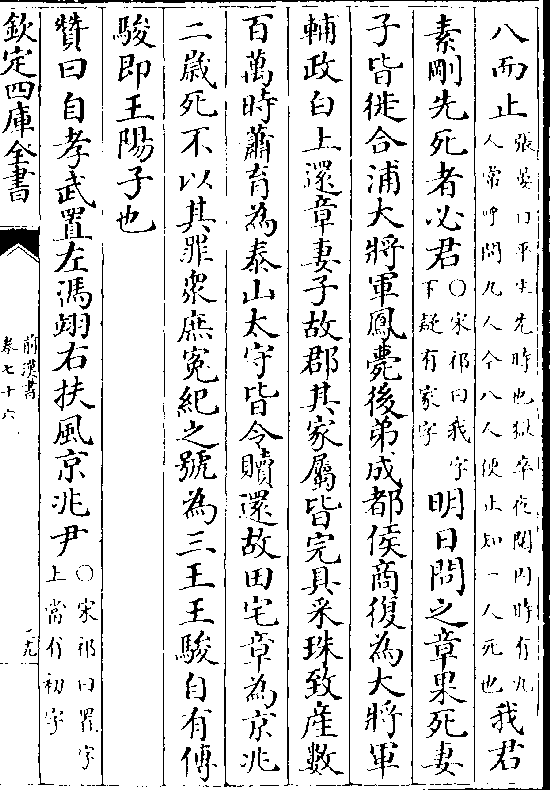 八而止張晏曰平生先時也獄卒夜閱囚時有九人常呼問九人今八人便止知一人死也我君
素剛先死者必君○宋祁曰我字下疑有家字明日問之章果死妻
子皆徙合浦大將軍鳳薨後弟成都侯商復為大將軍
輔政白上還章妻子故郡其家屬皆完具采珠致產數
百萬時蕭育為泰山太守皆令贖還故田宅章為京兆
二歲死不以其罪衆庶冤紀之號為三王王駿自有傳
駿即王陽子也
贊曰自孝武置左馮翊右扶風京兆尹○宋祁曰置字上當有初字
欽定四庫全書
前漢書
卷七十六